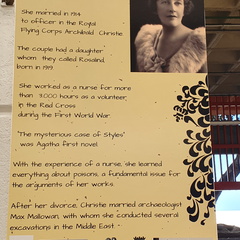 She married in 1914
to officer in the Royal
Flying Corps Archibald Christie
The couple had a daughter
whom they called Rosalind,
born in 1919.
She worked as a nurse for more
than 3,000 hours as a volunteer
in the Red Cross
during the First World War.
"The mysterious case of Styles"
was Agatha first novel.
With the experience of a nurse, she learned
everything about poisons, a fundamental issue for
the arguments of her works.
After her divorce, Christie married archaeologist
Max Mallowan, with whom she conducted several
excavations in the Middle East.